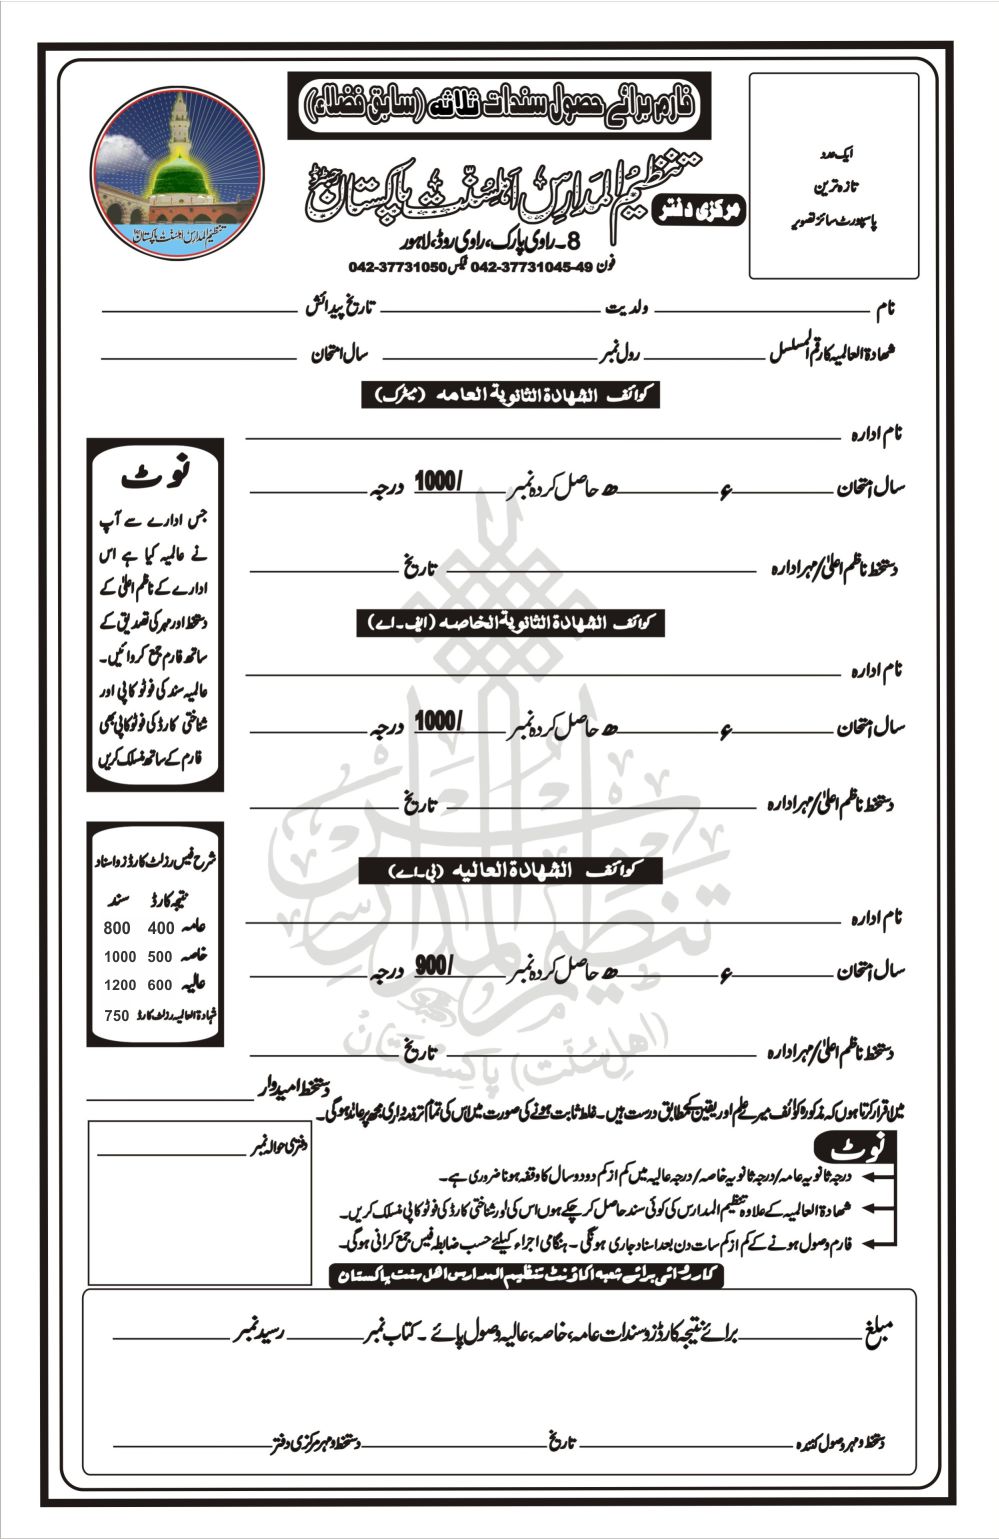 فارم برائے حصول سندات ثلاثہ (سابق فضلاء)
تنظیم المدارس اہلسنّت پاکستان رجسٹرڈ
مرکزی دفتر
8۔راوی پارک، راوی روڈ، لاہور
فون 49-042-37731045 فیکس 042-37731050
ایک عدد
تازہ ترین
پاسپورٹ سائز تصویر
تنظیم المدارس اہلسنت پاکستان
نام ولدیت تاریخ پیدائش
شھادۃ العالمیہ کا رقم المسلسل رول نمبر سال امتحان
کوائف الشھادۃ الثانویۃ العامہ (میٹرک)
نام ادارہ
سال امتحان ء ھ حاصل کردہ نمبر 1000/ درجہ
دستخط ناظم اعلیٰ/مہر ادارہ تاریخ
کوائف الشھادۃ الثانویۃ الخاصہ (ایف۔اے)
نام ادارہ
سال امتحان ء ھ حاصل کردہ نمبر 1000/ درجہ
دستخط ناظم اعلیٰ/مہر ادارہ تاریخ
کوائف الشھادۃ العالیہ (بی۔اے)
نام ادارہ
سال امتحان ء ھ حاصل کردہ نمبر 900/ درجہ
دستخط ناظم اعلیٰ/مہر ادارہ تاریخ
نوٹ
جس ادارے سے آپ
نے عالمیہ کیا ہے اس
ادارے کے ناظم اعلیٰ کے
دستخط اور مہر کی تصدیق کے
ساتھ فارم جمع کروائیں۔
عالمیہ سند کی فوٹو کاپی اور
شناختی کارڈ کی فوٹو کاپی بھی
فارم کے ساتھ منسلک کریں
شرح فیس رزلٹ کارڈز و اسناد
نتیجہ کارڈ سند
عامہ 400 800
خاصہ 500 1000
عالیہ 600 1200
شہادۃ العالمیہ رزلٹ کارڈ 750
تنظیم المدارس
(اہل سنّت) پاکستان
میں اقرار کرتا ہوں کہ مذکورہ کوائف میرے علم اور یقین کے مطابق درست ہیں۔ غلط ثابت ہونے کی صورت میں اس کی تمام تر ذمہ داری مجھ پر عائد ہوگی۔
دستخط امیدوار
دفتری حوالہ نمبر
نوٹ
درجہ ثانویہ عامہ/درجہ ثانویہ خاصہ/درجہ عالیہ میں کم از کم دو دو سال کا وقفہ ہونا ضروری ہے۔
شھادۃ العالمیہ کے علاوہ تنظیم المدارس کی کوئی سند حاصل کر چکے ہوں اس کی اور شناختی کارڈ کی فوٹو کاپی منسلک کریں۔
فارم وصول ہونے کے کم از کم سات دن بعد اسناد جاری ہونگی۔ ہنگامی اجراء کیلئے حسب ضابطہ فیس جمع کرانی ہوگی۔
کارروائی برائے شعبہ اکاؤنٹ تنظیم المدارس اھل سنت پاکستان
مبلغ برائے نتیجہ کارڈز و سندات عامہ، خاصہ، عالیہ وصول پائے ۔ کتاب نمبر رسید نمبر
دستخط و مہر وصول کنندہ تاریخ دستخط و مہر مرکزی دفتر